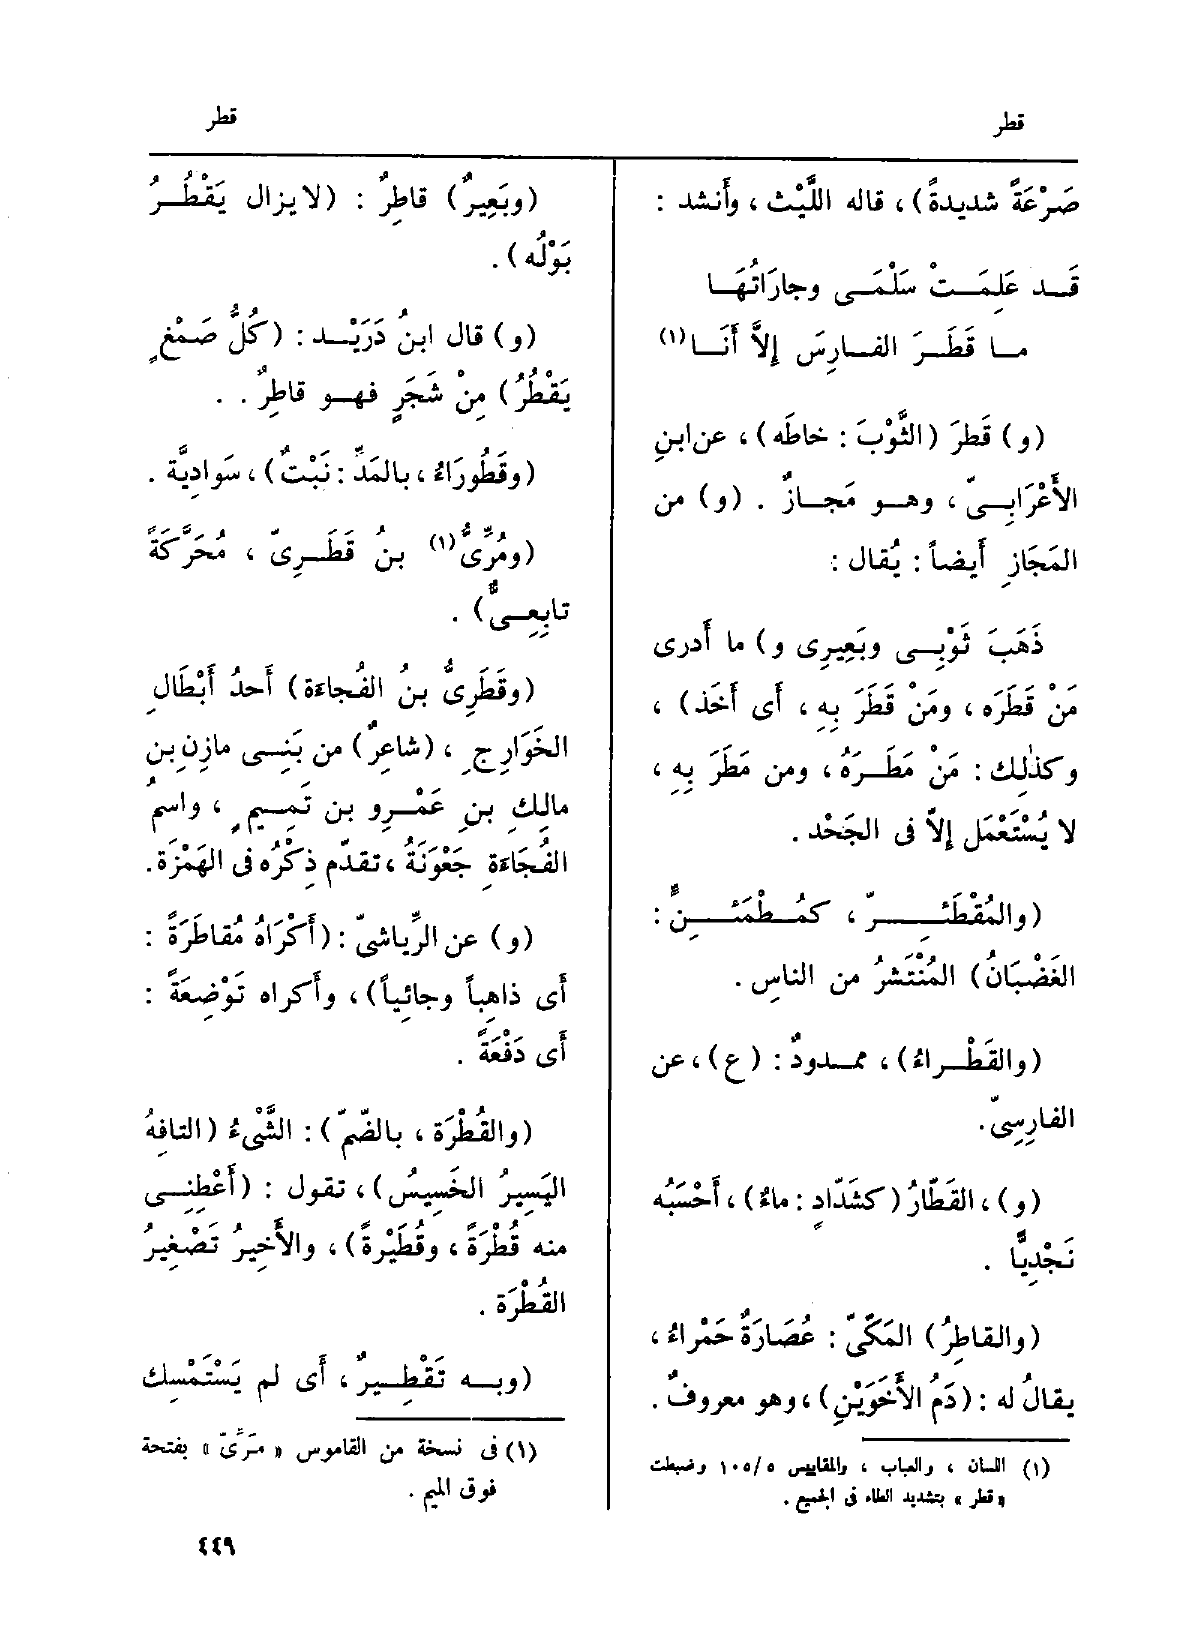 قطر
قطر
صَرْعَةً شديدةً) ، قاله اللَّيْث ، وأَنشد :
قَد عَلِمَتْ سَلْمَى وجارَاتُهَا
ما قَطَرَ الفارِسَ إِلاَّ أَنَا(١)
(و) قَطرَ (الثَّوْبَ : خاطَه) ، عن ابنِ
الأَعْرَابِىّ ، وهو مَجازٌ . (و) من
المَجَازِ أَيضاً : يُقال :
ذَهَبَ ثَوْبِى وبَعِيرِى و) ما أَدرى
مَنْ قَطَرَه ، ومَنْ قَطَرَ بِهِ ، أَى أَخَذ) ،
وكذٰلِك : مَنْ مَطَرَهُ ، ومن مَطَرَ بِهِ ،
لا يُسْتَعْمَل إِلاّ فى الجَحْد .
(والمُقْطَئِرّ ، كمُطْمَئِنٍّ :
الغَضْبَانُ) المُنْتَشرُ من الناسِ .
(والقَطْراءُ) ، ممدودٌ : (ع) ، عن
الفارِسِىّ .
(و) ، القَطّارُ (كشَدّادٍ : ماءٌ) ، أَحْسَبُه
نَجْدِيًّا .
(والقاطِرُ) المَكِّىّ : عُصَارَةٌ حَمْراءُ ،
يقالُ له : (دَمُ الأَخَوَيْنِ) ، وهو معروفٌ .
(١) اللسان ، والعباب ، والمقاييس ١٠٥/٥ وضبطت
«قطر» بتشديد الطاء فى الجميع .
(وبَعِيرٌ) قاطِرٌ : (لا يزال يَقْطُرُ
بَوْلُه) .
(و) قال ابنُ دَرَيْد : (كُلُّ صَمْغٍ
يَقْطُرُ) مِنْ شَجَرٍ فهو قاطِرٌ . .
(وقَطُورَاءُ ، بالمَدِّ : نَبْتٌ) ، سَوادِيَّة .
(ومُرِّىٌّ(١) بنُ قَطَرِىّ ، مُحَرَّكَةً
تابِعِىٌّ) .
(وقَطَرِىُّ بنُ الفُجاءَة) أَحدُ أَبْطَالِ
الخَوَارِجِ ، (شاعِرٌ) من بَنِى مازِنِ بن
مالِكِ بنِ عَمْرِو بن تَمِيمٍ ، واسمُ
الفُجَاءَةِ جَعْوَنَةُ ، تقدّم ذِكْرُه فى الهَمْزَة .
(و) عن الرِّياشىّ : (أَكْرَاهُ مُقاطَرَةً :
أَى ذاهِباً وجائِياً) ، وأَكراه تَوْضِعَةً :
أَى دَفْعَةً .
(والقُطْرَة ، بالضّمّ) : الشَّىْءُ (التافِهُ
اليَسِيرُ الخَسِيسُ) ، تقول : (أَعْطِنِى
منه قُطْرَةً ، وقُطَيْرةً) ، والأَخِيرُ تَصْغِيرُ
القُطْرَة .
(وبه تَقْطِيرٌ ، أَى لم يَسْتَمْسِك
(١) فى نسخة من القاموس «مَرِّىّ» بفتحة
فوق الميم .
٤٤٩